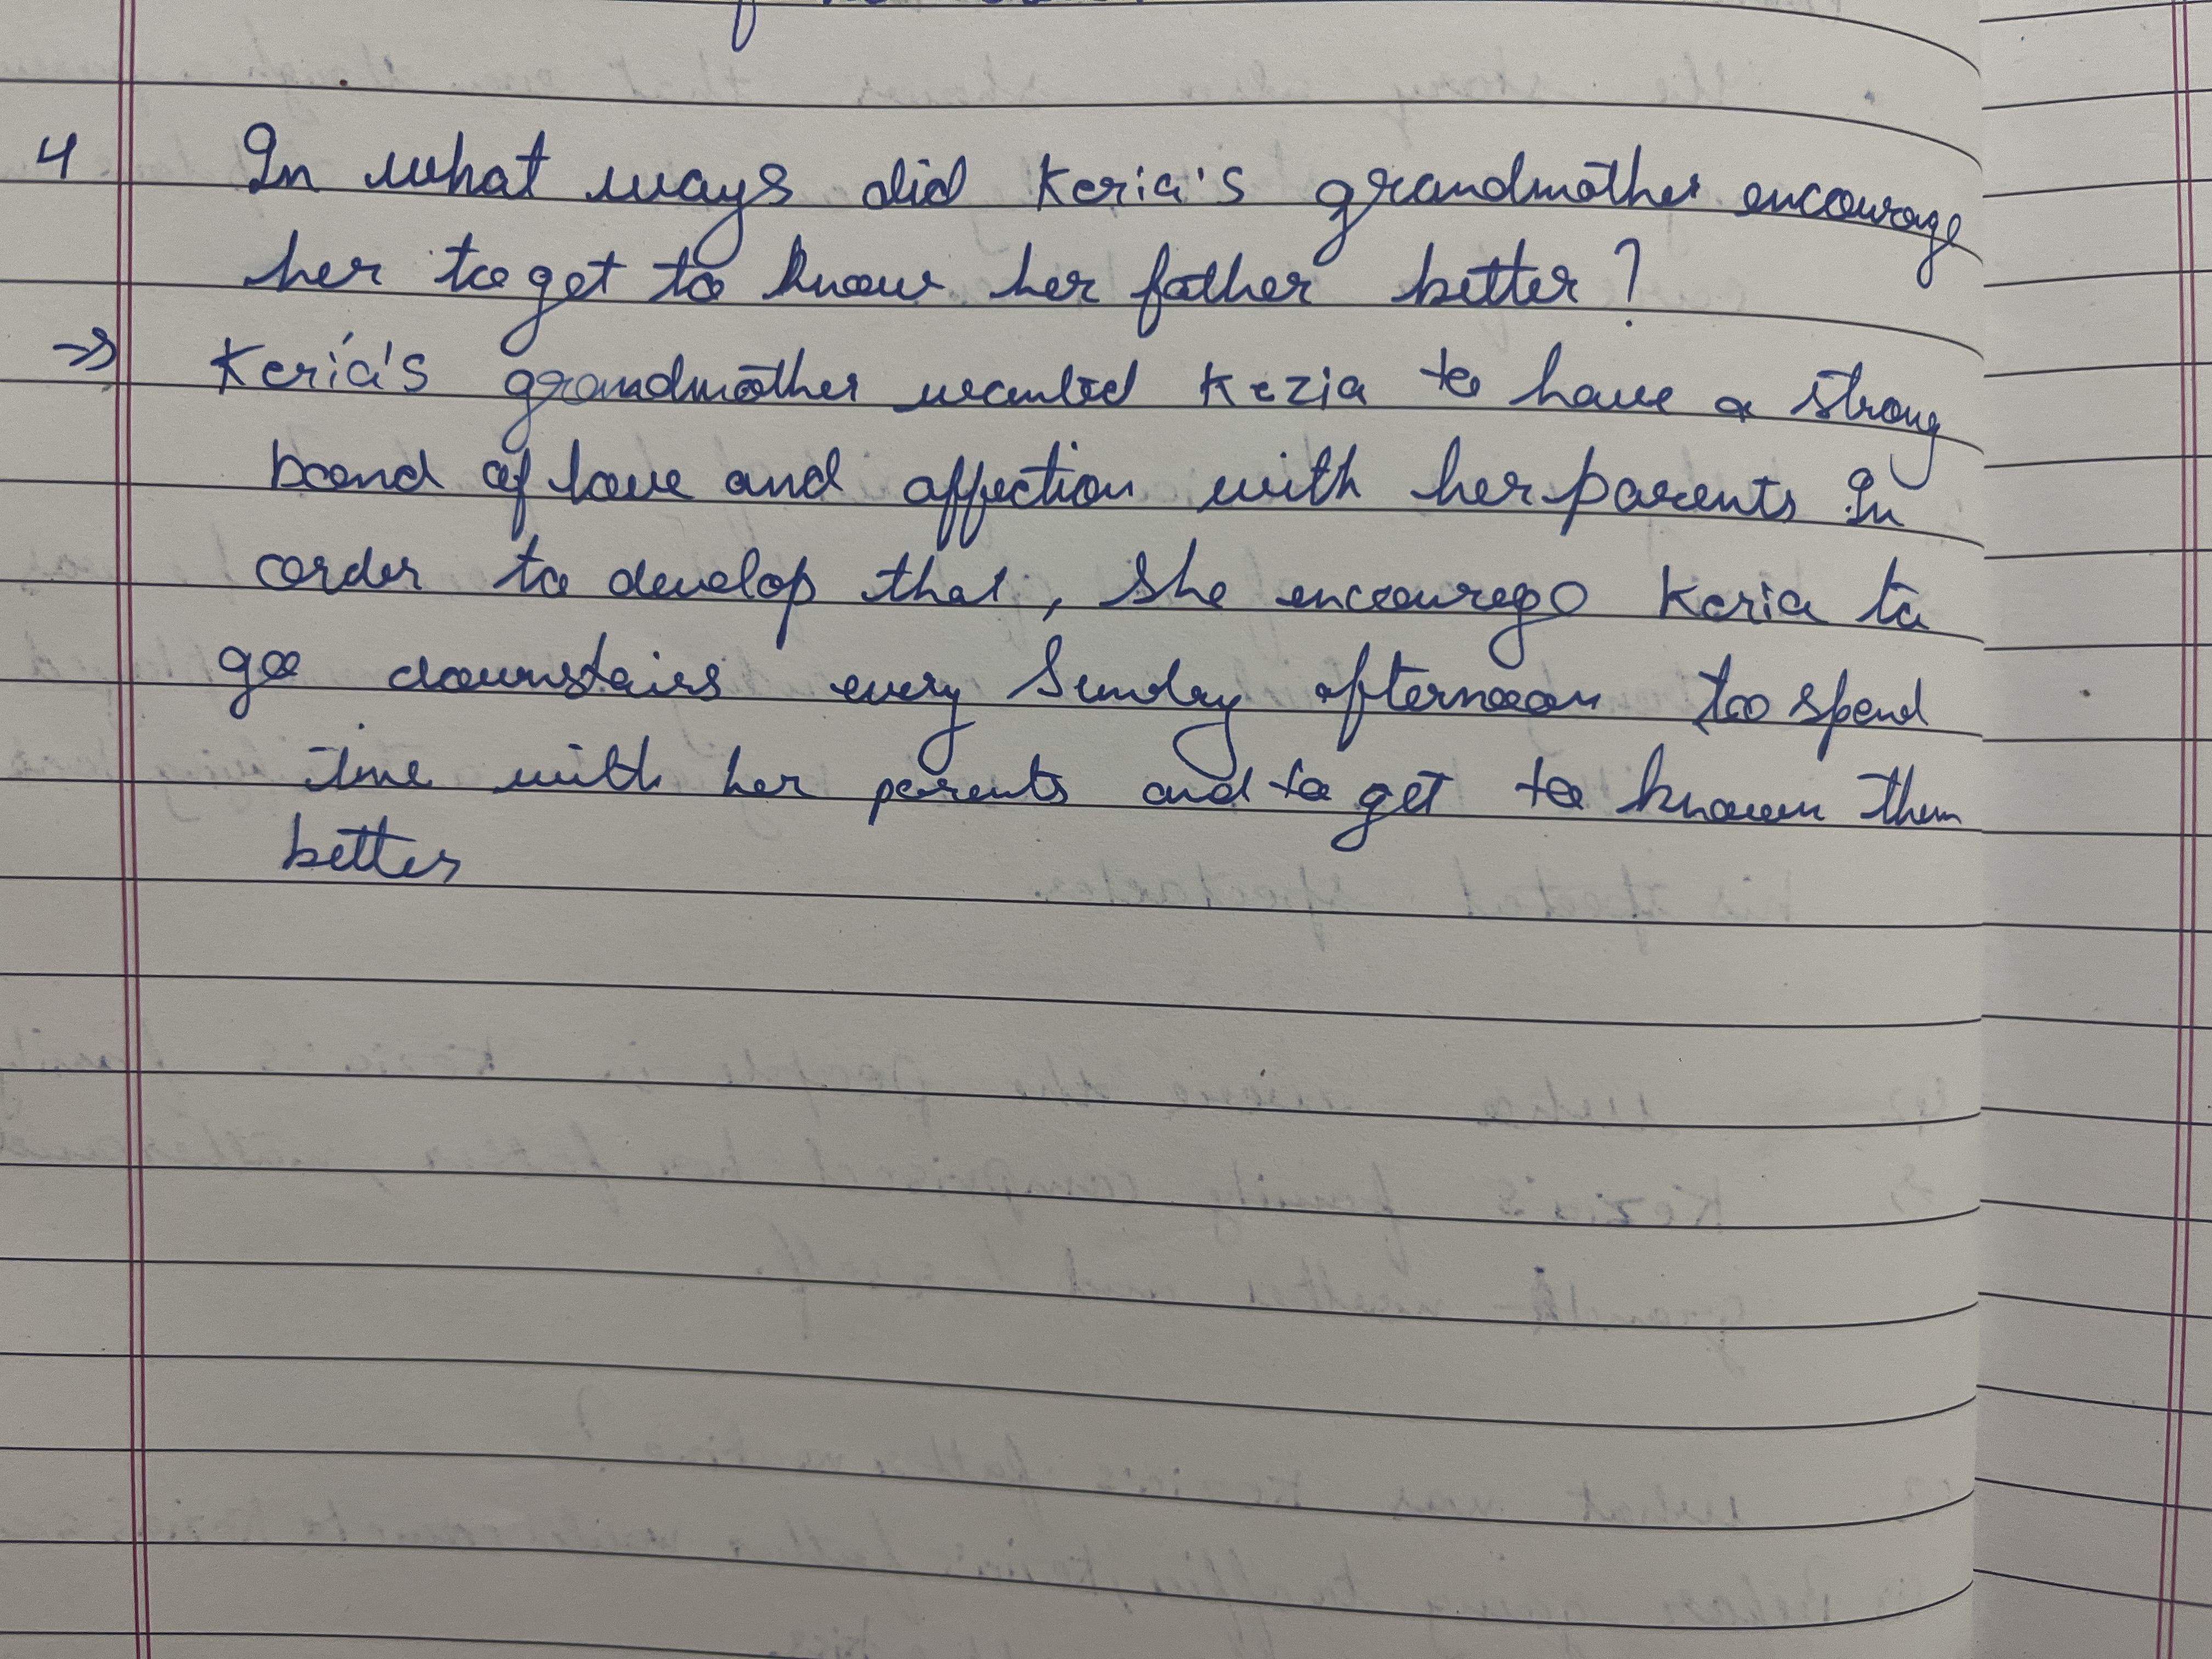 4 In what ways did Keria's grandmother encourage
her to get to know her father better?
⇒ Keria's grandmother wanted Kezia to have a strong
bond of love and affection with her parents In
order to develop that, She encourage Keria to
go downstairs every Sunday afternoon too spend
time with her parents and to get to known them
better